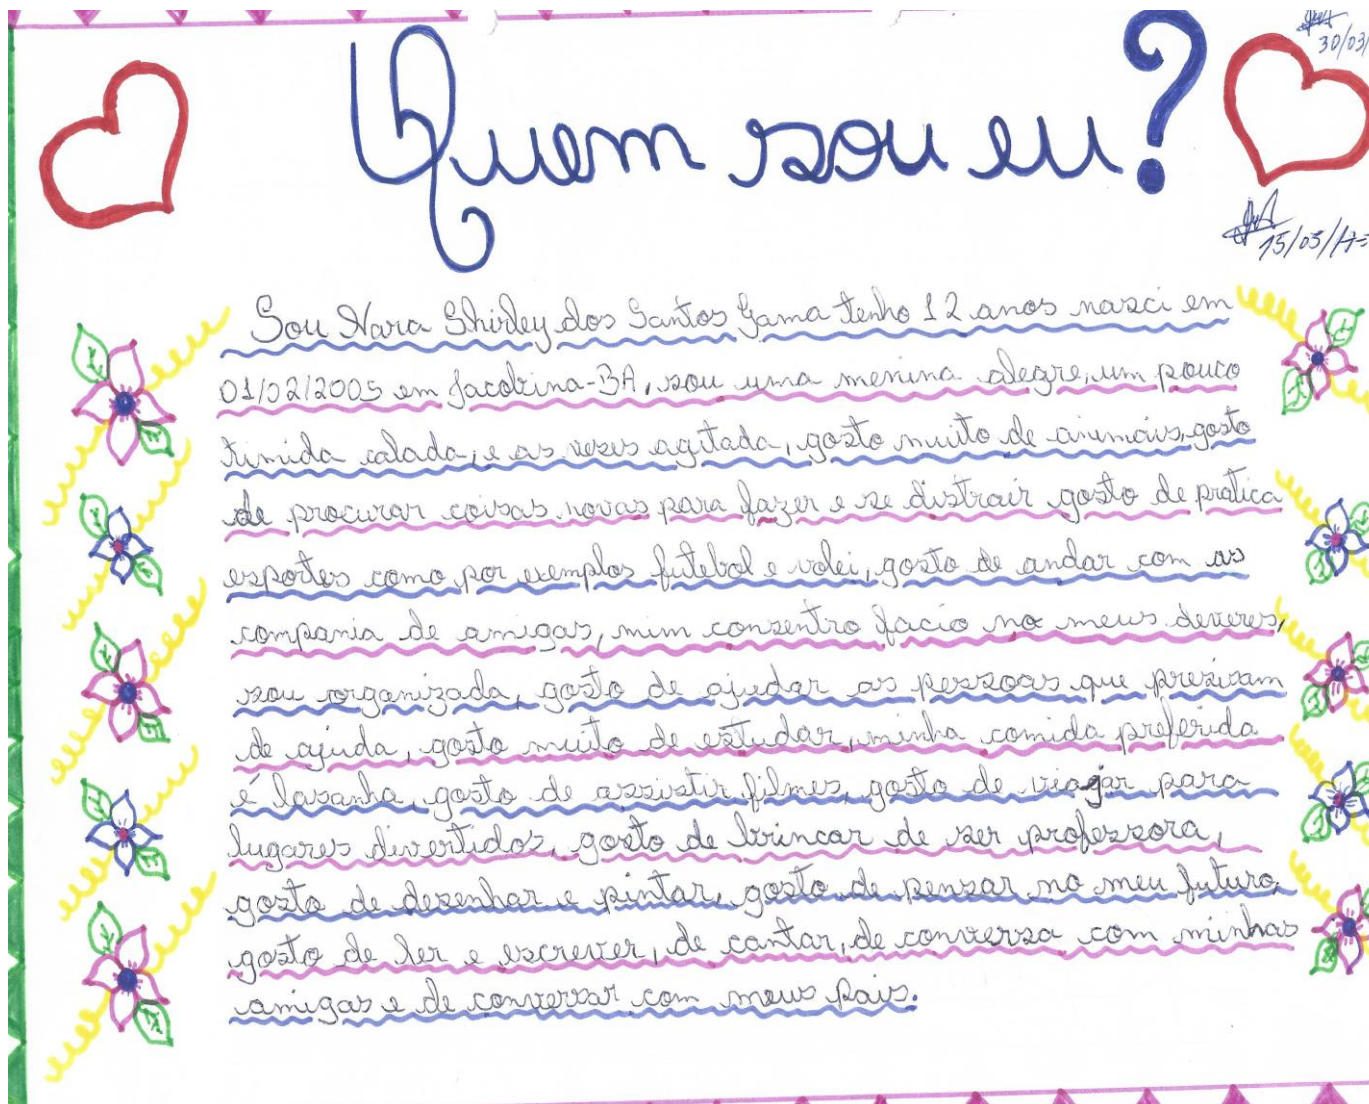 Quem sou eu?
30/03/
15/03/17
Sou Nara Shirley dos Santos Gama tenho 12 anos nasci em
01/02/2005 em Jacobina-BA, sou uma menina alegre, um pouco
timida calada, e as vezes agitada, gosto muito de animais, gosto
de procurar coisas novas para fazer e se distrair gosto de pratica
esportes como por exemplos futebol e volei, gosto de andar com as
compania de amigas, mim consentro facio no meus deveres,
sou organizada, gosto de ajudar as pessoas que presizam
de ajuda, gosto muito de estudar, minha comida preferida
é lasanha, gosto de assistir filmes, gosto de viajar para
lugares divertidos, gosto de brincar de ser professora,
gosto de desenhar e pintar, gosto de pensar no meu futuro,
gosto de ler e escrever, de cantar, de conversa com minhas
amigas e de conversar com meus pais.